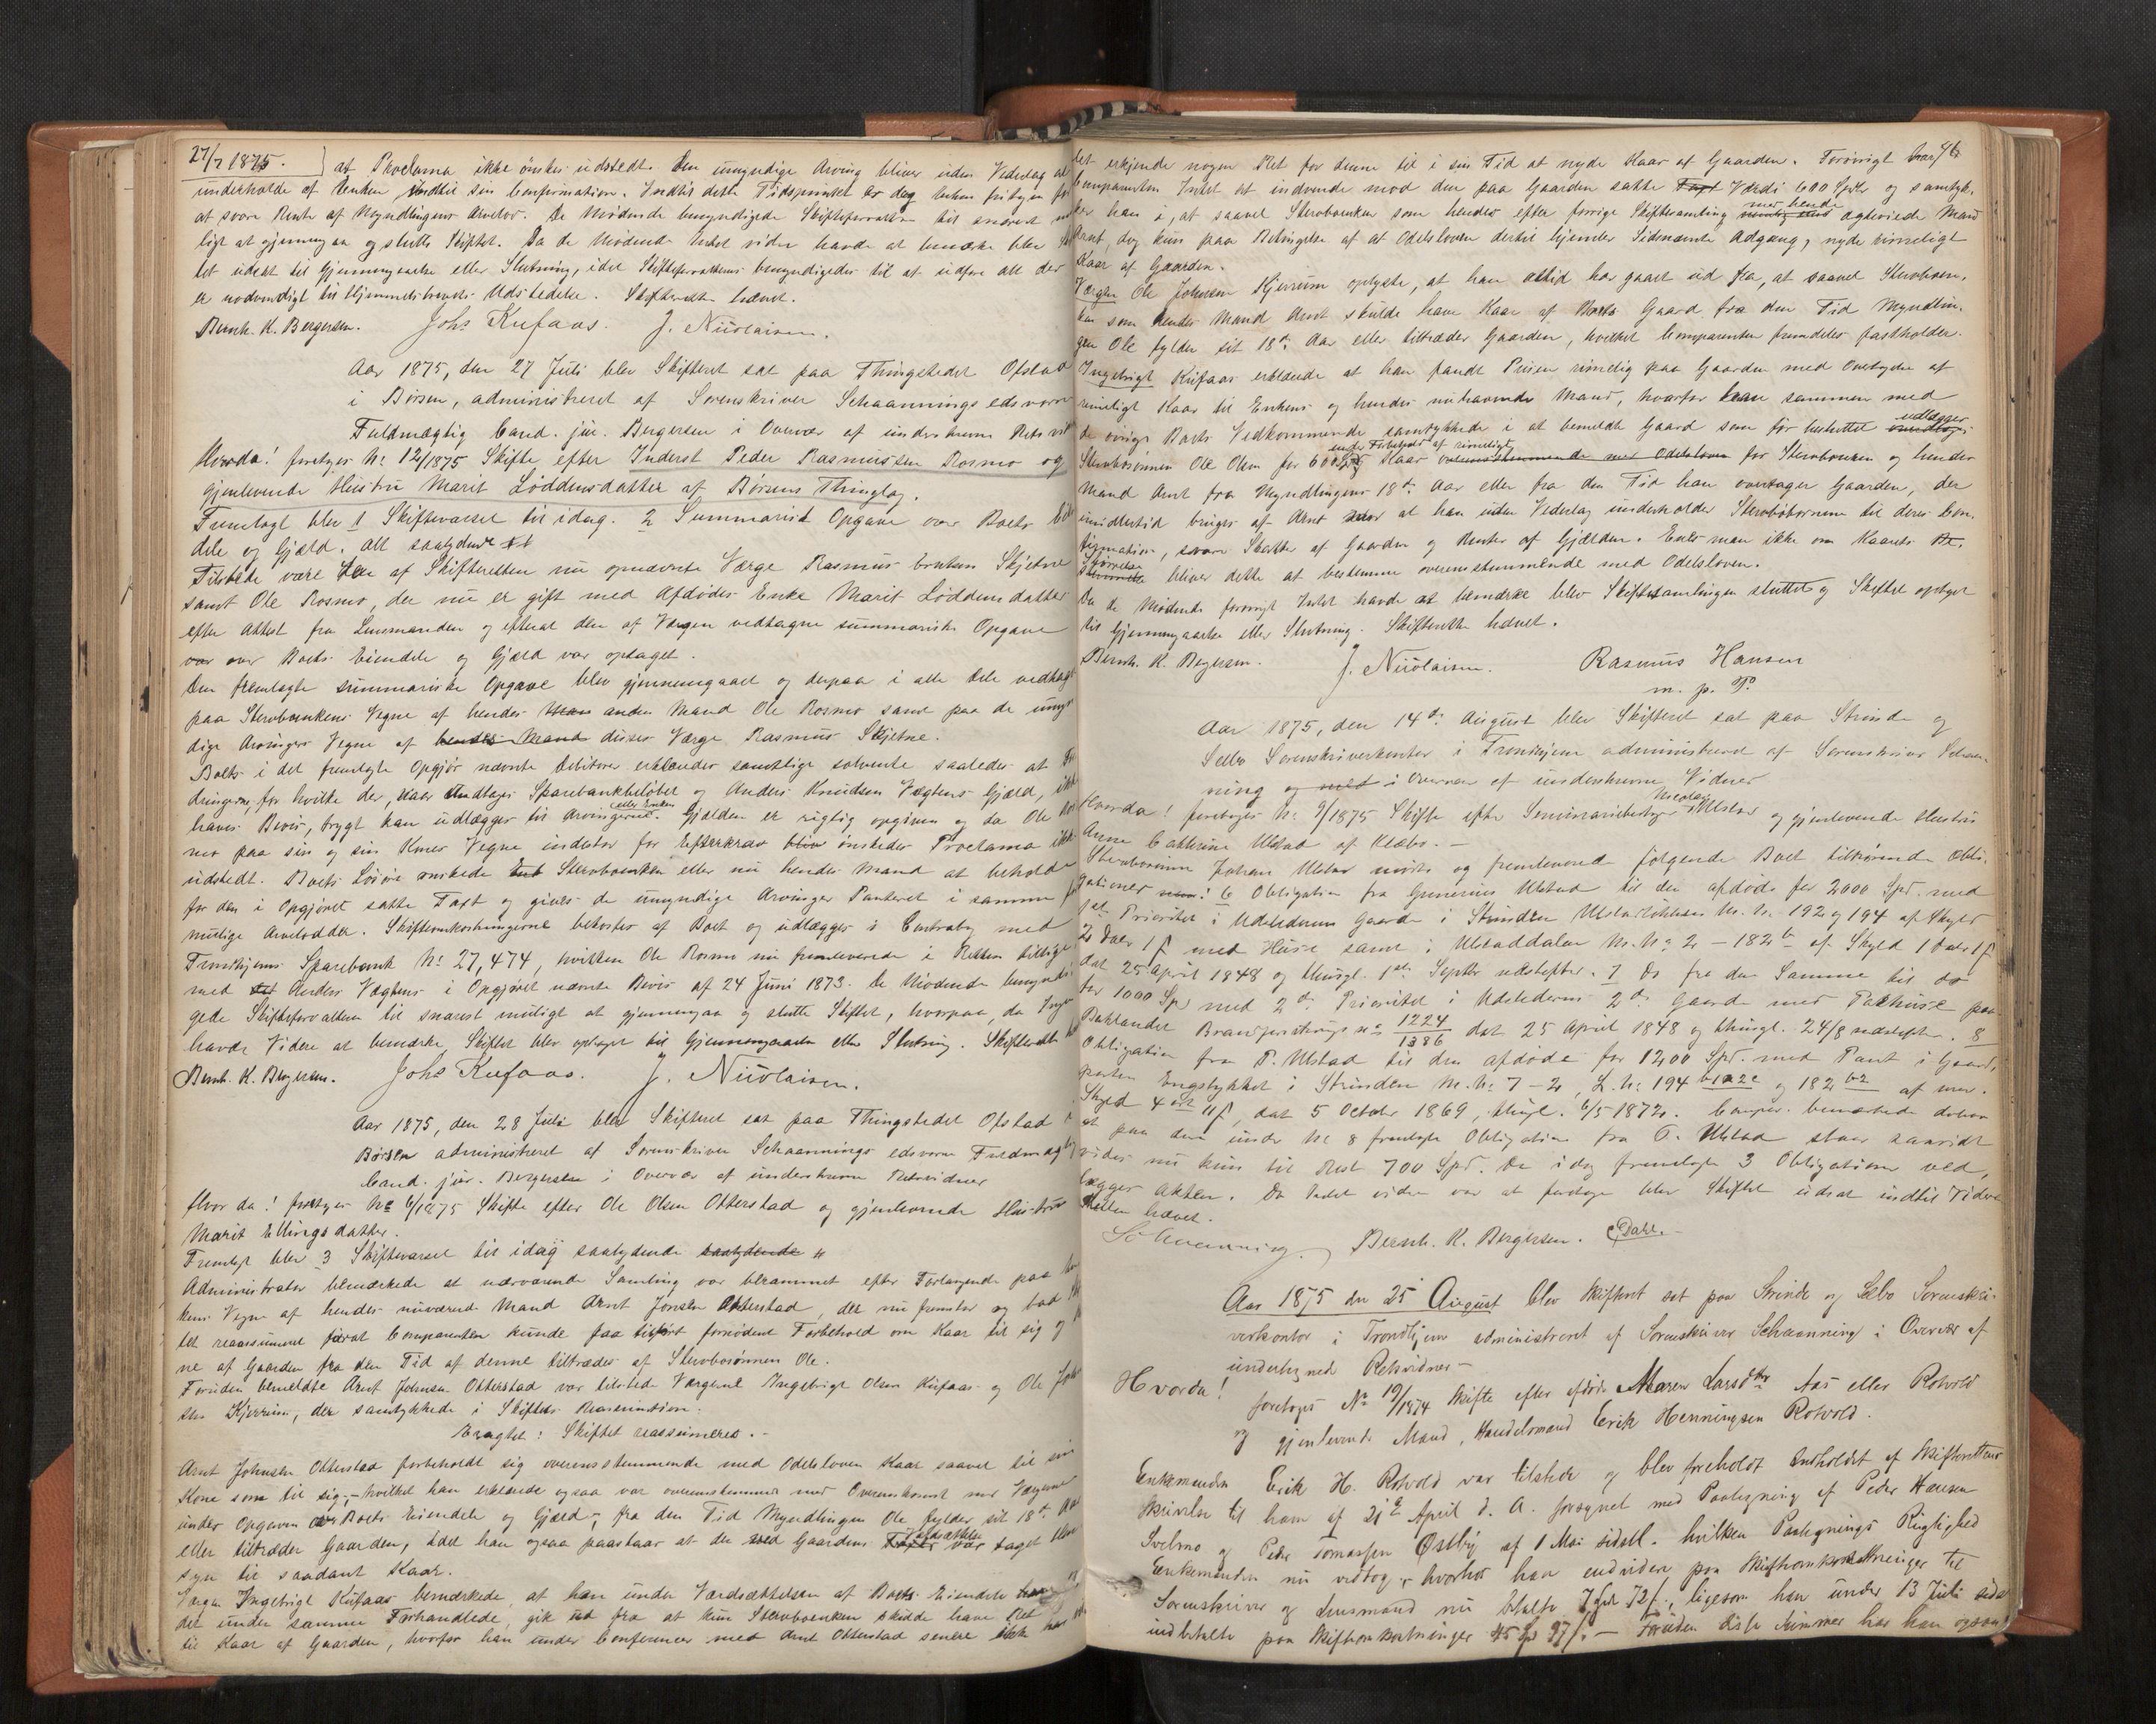 27/7 1875. at Proclama ikke ønskes udstedt. Den umyndige Arving bliver uden Vederlag at
underholde af Enken indtil sin Confirmation. Indtil dette Tidspunkt er dog Enken fritagen for
at svare Rente af Myndlingens Arvelod. De Mødende bemyndigede Skifteforvalteren til snarest mu
ligt at gjennemgaa og slutte Skiftet. Da de Mødende Intet videre havde at bemærke blev Skif
tet udsat til Gjennemgaaelse eller Slutning, idet Skifteforvalteren bemyndigedes til at udføre alt der
er nødvendigt til Hjemmelsbrevets Udstedelse. Skifteretten hævet.
Bernh. K. Bergersen. Johs Kufaas. J. Nicolaisen.
Aar 1875, den 27 Juli blev Skifteret sat paa Thingstedet Ofstad
i Børsen, administreret af Sorenskriver Schaannings edsvorne
Fuldmægtig Cand. jur. Bergersen i Overvær af underskrevne Retsvid
Hvorda! foretoges No 12/1875 Skifte efter Inderst Peder Rasmussen Rosmo og
gjenlevende Hustru Marit Løddensdatter af Børsens Thinglag.
Fremlagt blev 1 Skiftevarsel til idag. 2 Summarisk Opgave over Boets Eien
dele og Gjæld. alt saalydende
Tilstede være den af Skifteretten nu opnævnte Værge Rasmus Skjetne
samt Ole Rosmo, der nu er gift med Afdødes Enke Marit Løddensdatter
efter Attest fra Lensmanden og efterat den af Værgen vedtagne summariske Opgave
var over Boets Eiendele og Gjæld var optaget.
Den fremlagte summariske Opgave blev gjennemgaaet og derpaa i alle Dele vedtaget
paa Sterboenkens Vegne af hendes Man anden Mand Ole Rosmo samt paa de umyn
dige Arvingers Vegne af hendes Mand disses Værge Rasmus Skjetne.
Boets i det fremlagte Opgjør nævnte Debitorer erklæredes samtlige solvente saaledes at For
dringerne, for hvilke der, naar undtages Sparebankbeløbet og Anders Knudsen Vægtens Gjæld, ikke
haves Bevis, trygt kan udlægges til Arvingerne eller Enken. Gjælden er rigtig opgiven og da Ole Ros
mo paa sin og sin Kones Vegne indestod for Efterkrav bliver ønskedes Proclama ikke
udstedt. Boets Løsøre ønskede Sterboenken eller nu hendes Mand at beholde
for den i Opgjøret satte Taxt og gives de umyndige Arvinger Panteret i samme for
mulige Arvelodder. Skifteomkostningerne bekostes af Boet og udlægges i Contrabog med
Trondhjems Sparebank No 27,474, hvilken Ole Rosmo nu fremleverede i Retten tillige
med det Anders Vægtens i Opgjøret nævnte Bevis af 24 Juni 1873. De Mødende bemyndi
gede Skifteforvalteren til snarest muligt at gjennemgaa og slutte Skiftet, hvorpaa, da Ingen
havde Videre at bemærke, Skiftet blev optaget til Gjennemgaaelse eller Slutning. Skifteretten
Bernh. K. Bergersen. Johs Kufaas. J. Nicolaisen.
Aar 1875, den 28 Juli blev Skifteret sat paa Thingstedet Ofstad i
Børsen administreret af Sorenskriver Schaannings edsvorne Fuldmægtig
Cand. jur. Bergersen i Overvær af underskrevne Retsvidner
Hvor da! foretoges No 6/1875 Skifte efter Ole Olsen Otterstad og gjenlevende Hustru
Marit Ellingsdatter.
Fremlagt blev 3 Skiftevarsel til idag saalydende saalydende
Administrator bemærkede at nærværende Samling var berammet efter Forlangende paa En
kens Vegne af hendes nuværende Mand Arnt Jonsen Otterstad, der nu fremstod og bad Skif
tet reassumeret forat Comparenten kunde faa tilført fornødent Forbehold om Kaar til sig og
ne af Gaarden fra den Tid af denne tiltrædes af Sterbosønnen Ole.
Foruden bemeldte Arnt Johnsen Otterstad var tilstede Værgerne Ingebrigt Olsen Kufaas og Ole John
sen Kjerrum, der samtykkede i Skiftets Reassumtion.
Eragtet: Skiftet reassumeres.
Arnt Johnsen Otterstad forbeholdt sig overensstemmende med Odelsloven Kaar saavel til sin
Kone som til sig, hvilket han erklærede ogsaa var overensstemmende med Overenskomst med Værgerne
under Opgaven over Boets Eiendele og Gjæld, fra den Tid Myndlingen Ole fylder sit 18de Aar
eller tiltræder Gaarden, idet han ogsaa paastaar at der ved Gaardens Taxt værdsættelse var taget Hen
syn til saadant Kaar.
Værgen Ingebrigt Kufaas bemærkede, at han under Værdsættelsen af Boets Eiendele
det under samme Forhandlede, gik ud fra at kun Sterboenken skulde have Ret
til Kaar af Gaarden, hvorfor han under Conferencer med Arnt Otterstad senere ikke har
det erkjende nogen Ret for denne til i sin Tid at nyde Kaar af Gaarden. Forøvrigt havde
Comparenten Intet at indvende mod den paa Gaarden satte Taxt Værdi 600 Spdlr og samtyk-
ker han i, at saavel Sterboenken som hendes efter forrige Skiftesamling med hende ægteviede Mand
Arnt, dog kun paa Betingelse af at Odelsloven dertil hjemler Sidstnævnte Adgang, nyde rimeligt
Kaar af Gaarden.
Værgen Ole Johnsen Kjerrum oplyste, at han altid har gaaet ud fra, at saavel Sterboen-
ken som hendes Mand Arnt skulde have Kaar af Boets Gaard fra den Tid Myndlin-
gen Ole fylder sit 18de Aar eller tiltræder Gaarden, hvilket Comparenten fremdeles fastholder.
Ingebrigt Kufaas erklærede at han fandt Prisen rimelig paa Gaarden med Overtagelse af
rimeligt Kaar til Enkens og hendes nuhavende Mand, hvorfor han sammen med
de øvrige Boets Vedkommende samtykkede i at bemeldte Gaard som før besluttet udlægges
Sterbosønnen Ole Olsen for 600 Spd under Forbehold af rimeligt Kaar overensstemmende med Odelsloven for Sterboenken og hendes
Mand Arnt fra Myndlingens 18de Aar eller fra den Tid han overtager Gaarden, der
imidlertid bruges af Arnt mod at han uden Vederlag underholder Sterbobørnene til deres Con-
firmation, svarer Skatter af Gaarden og Renter af Gjælden. Enes man ikke om Kaarets Be-
Størrelse stemmelse bliver dette at bestemme overensstemmende med Odelsloven.
Da de Mødende forøvrigt Intet havde at bemærke blev Skiftesamlingen sluttet og Skiftet optaget
til Gjennemgaaelse eller Slutning. Skifteretten hævet.
Bernh. K. Bergersen. J. Nicolaisen. Rasmus Hansen
m. p. P.
Aar 1875, den 14de August blev Skifteret sat paa Strinde og
Selbo Sorenskriverkontor i Trondhjem administreret af Sorenskriver Schaan-
ning og med i Overvær af underskrevne Vidner
Hvorda! foretoges No 9/1875 Skifte efter Seminariebestyrer Nicolai Ulstad og gjenlevende Hustru
Anne Cathrine Ulstad af Klæbo.-
Sterbosønnen Johan Ulstad mødte og fremleverede følgende Boet tilhørende Obli-
gationer nem: 6 Obligation fra Gunerius Ulstad til den afdøde for 2000 Spd. med
1ste Prioritet i Udstederens Gaarde i Strinden Ulstadløkken M. No 192 og 194 af Skyld
2 Daler 1 ß med Huse samt i Ulstaddalen M. No 2 - 182 b af Skyld 1 Daler 1 ß
dat 25 April 1848 og thingl. 1ste Septbr næstefter. 7 Do fra den Samme til do
for 1000 Spd med 2den Prioritet i Udstederens 2de Gaarde med Pakhuse paa
Baklandet Brandforsikrings No 1224/1386 dat 25 April 1848 og thingl. 24/8 næstefter. 8
Obligation fra P. Ulstad til den afdøde for 1200 Spd. med Pant i Gaard-
parten Engstykket i Strinden M. No 7-2, L. No 194 og 182 b2 af urev.
Skyld 4 ort 11 ß, dat 5 October 1869, thingl. 6/5 1872. Compar. bemærkede derhos
at paa den under No 8 fremlagte Obligation fra P. Ulstad staar saavidt
vides nu kun til Rest 700 Spd. De idag fremlagte 3 Obligationer ved-
lægges Akten. Da Intet videre var at foretage blev Skiftet udsat indtil Videre
Retten hævet.
Schaanning. Bernh. K. Bergersen. Dahl.
Aar 1875 den 25 August blev Skifteret sat paa Strinde og Selbo Sorenskri-
verkontor i Trondhjem administreret af Sorenskriver Schaanning i Overvær af
undertegnede Retsvidner -
Hvorda!
foretoges No 19/1874 Skifte efter afdøde Maren Larsdtr Aas eller Rotvold
og gjenlevende Mand, Handelsmand Erik Henningsen Rotvold.
Enkemanden Erik H. Rotvold var tilstede og blev foreholdt Indholdet af Skifterettens
Skrivelse til ham af 21de April d. A. forsynet med Paategning af Peder Hansen
Svelmo og Peder Tomassen Østby af 1 Mai sidstl. hvilken Paategnings Rigtighed
Enkemanden nu vedtog, hvorhos han endvidere paa Skifteomkostninger til
Sorenskriver og Lensmand nu betalte 7 Spd 72 ß, ligesom han under 13 Juli sidst
indbetalte paa Skifteomkostninger 45 Spd 97 ß. - Foruden disse Summer har han ogsaa